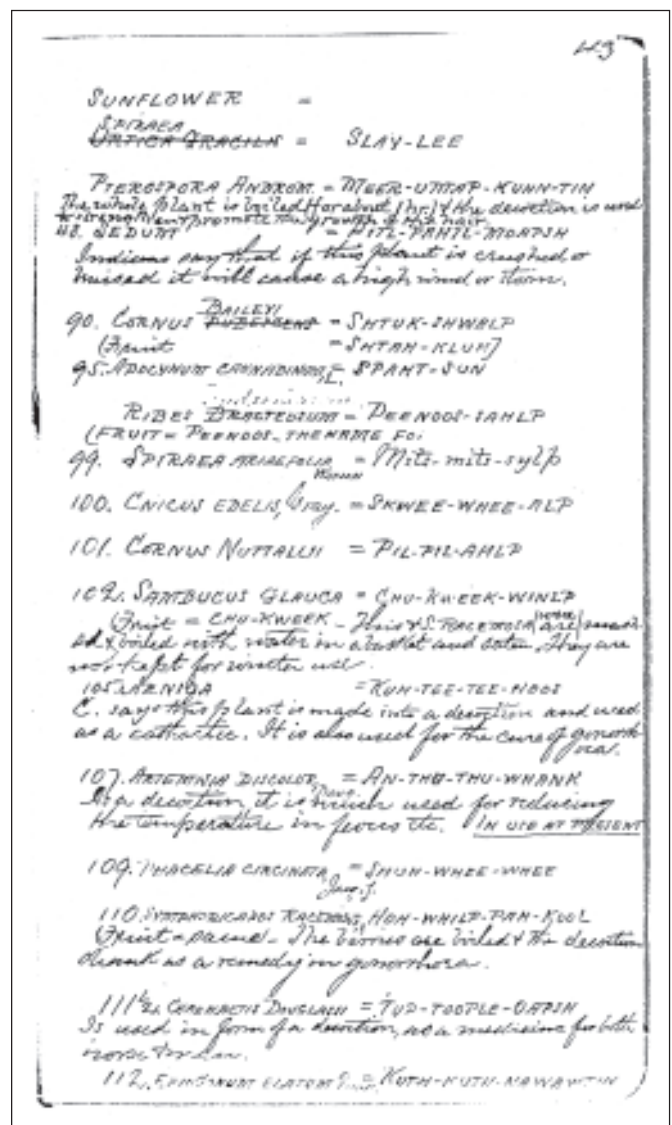 43
SUNFLOWER =
SPIRAEA
URTICA GRACILIS = SLAY-LEE
PTEROSPORA ANDROM. = MEER-UMAP-KUHN-TIN
The whole plant is boiled for about 1 hr) & the decoction is used
to strengthen & promote the growth of the hair
SEDUM = HITL-PAHTL-MOAPSH
Indians say that if this plant is crushed or
bruised it will cause a high wind or storm.
90. CORNUS BAILEYI PUBESCENS = SHTUK-SHWALP
(Fruit = SHTAH-KLUH)
95. APOCYNUM CANNABINUM, L. = SPAHT-SUN
RIBES BRACTEOSUM = PEENOOS-SAHLP
(FRUIT = PEENOOS-THE NAME FO
99. SPIRAEA ARIAEFOLIA = Mits-mits-sylp
100. CNICUS EDELIS, Gray. = SKWEE-WHEE-ALP
101. CORNUS NUTTALLII = PIL-PIL-AHLP
102. SAMBUCUS GLAUCA = CHU-KWEEK-WINLP
(Fruit = CHU-KWEEK - This & S. RACEMOSA (were are) mash
ed & boiled with water in a basket and eaten. They are
not kept for winter use.
105. ARNICA = KUH-TEE-TEE-HOOS
C. says this plant is made into a decoction and used
as a cathartic. It is also used for the cure of gonorrh
oea.
107. ARTEMISIA DISCOLOR, = AN-THU-THU-WHANK
As a decoction it is much used for reducing
the temperature in fevers etc. IN USE AT PRESENT
109. PHACELIA CIRCINATA, = SHUH-WHEE-WHEE
Jacq. f.
110. SYMPHORICARPOS RACEMOSUS, HOH-WHILP-PAH-KOOL
(Fruit = same - The berries are boiled & the decoction
drank as a remedy in gonorrhoea.
111 1/2. CHAENACTIS DOUGLASII = TUP-TOOPLE-OAPSH
Is used in form of a decoction, as a medicine for both
112. = KUTH-KUTH-NAWAWTIN